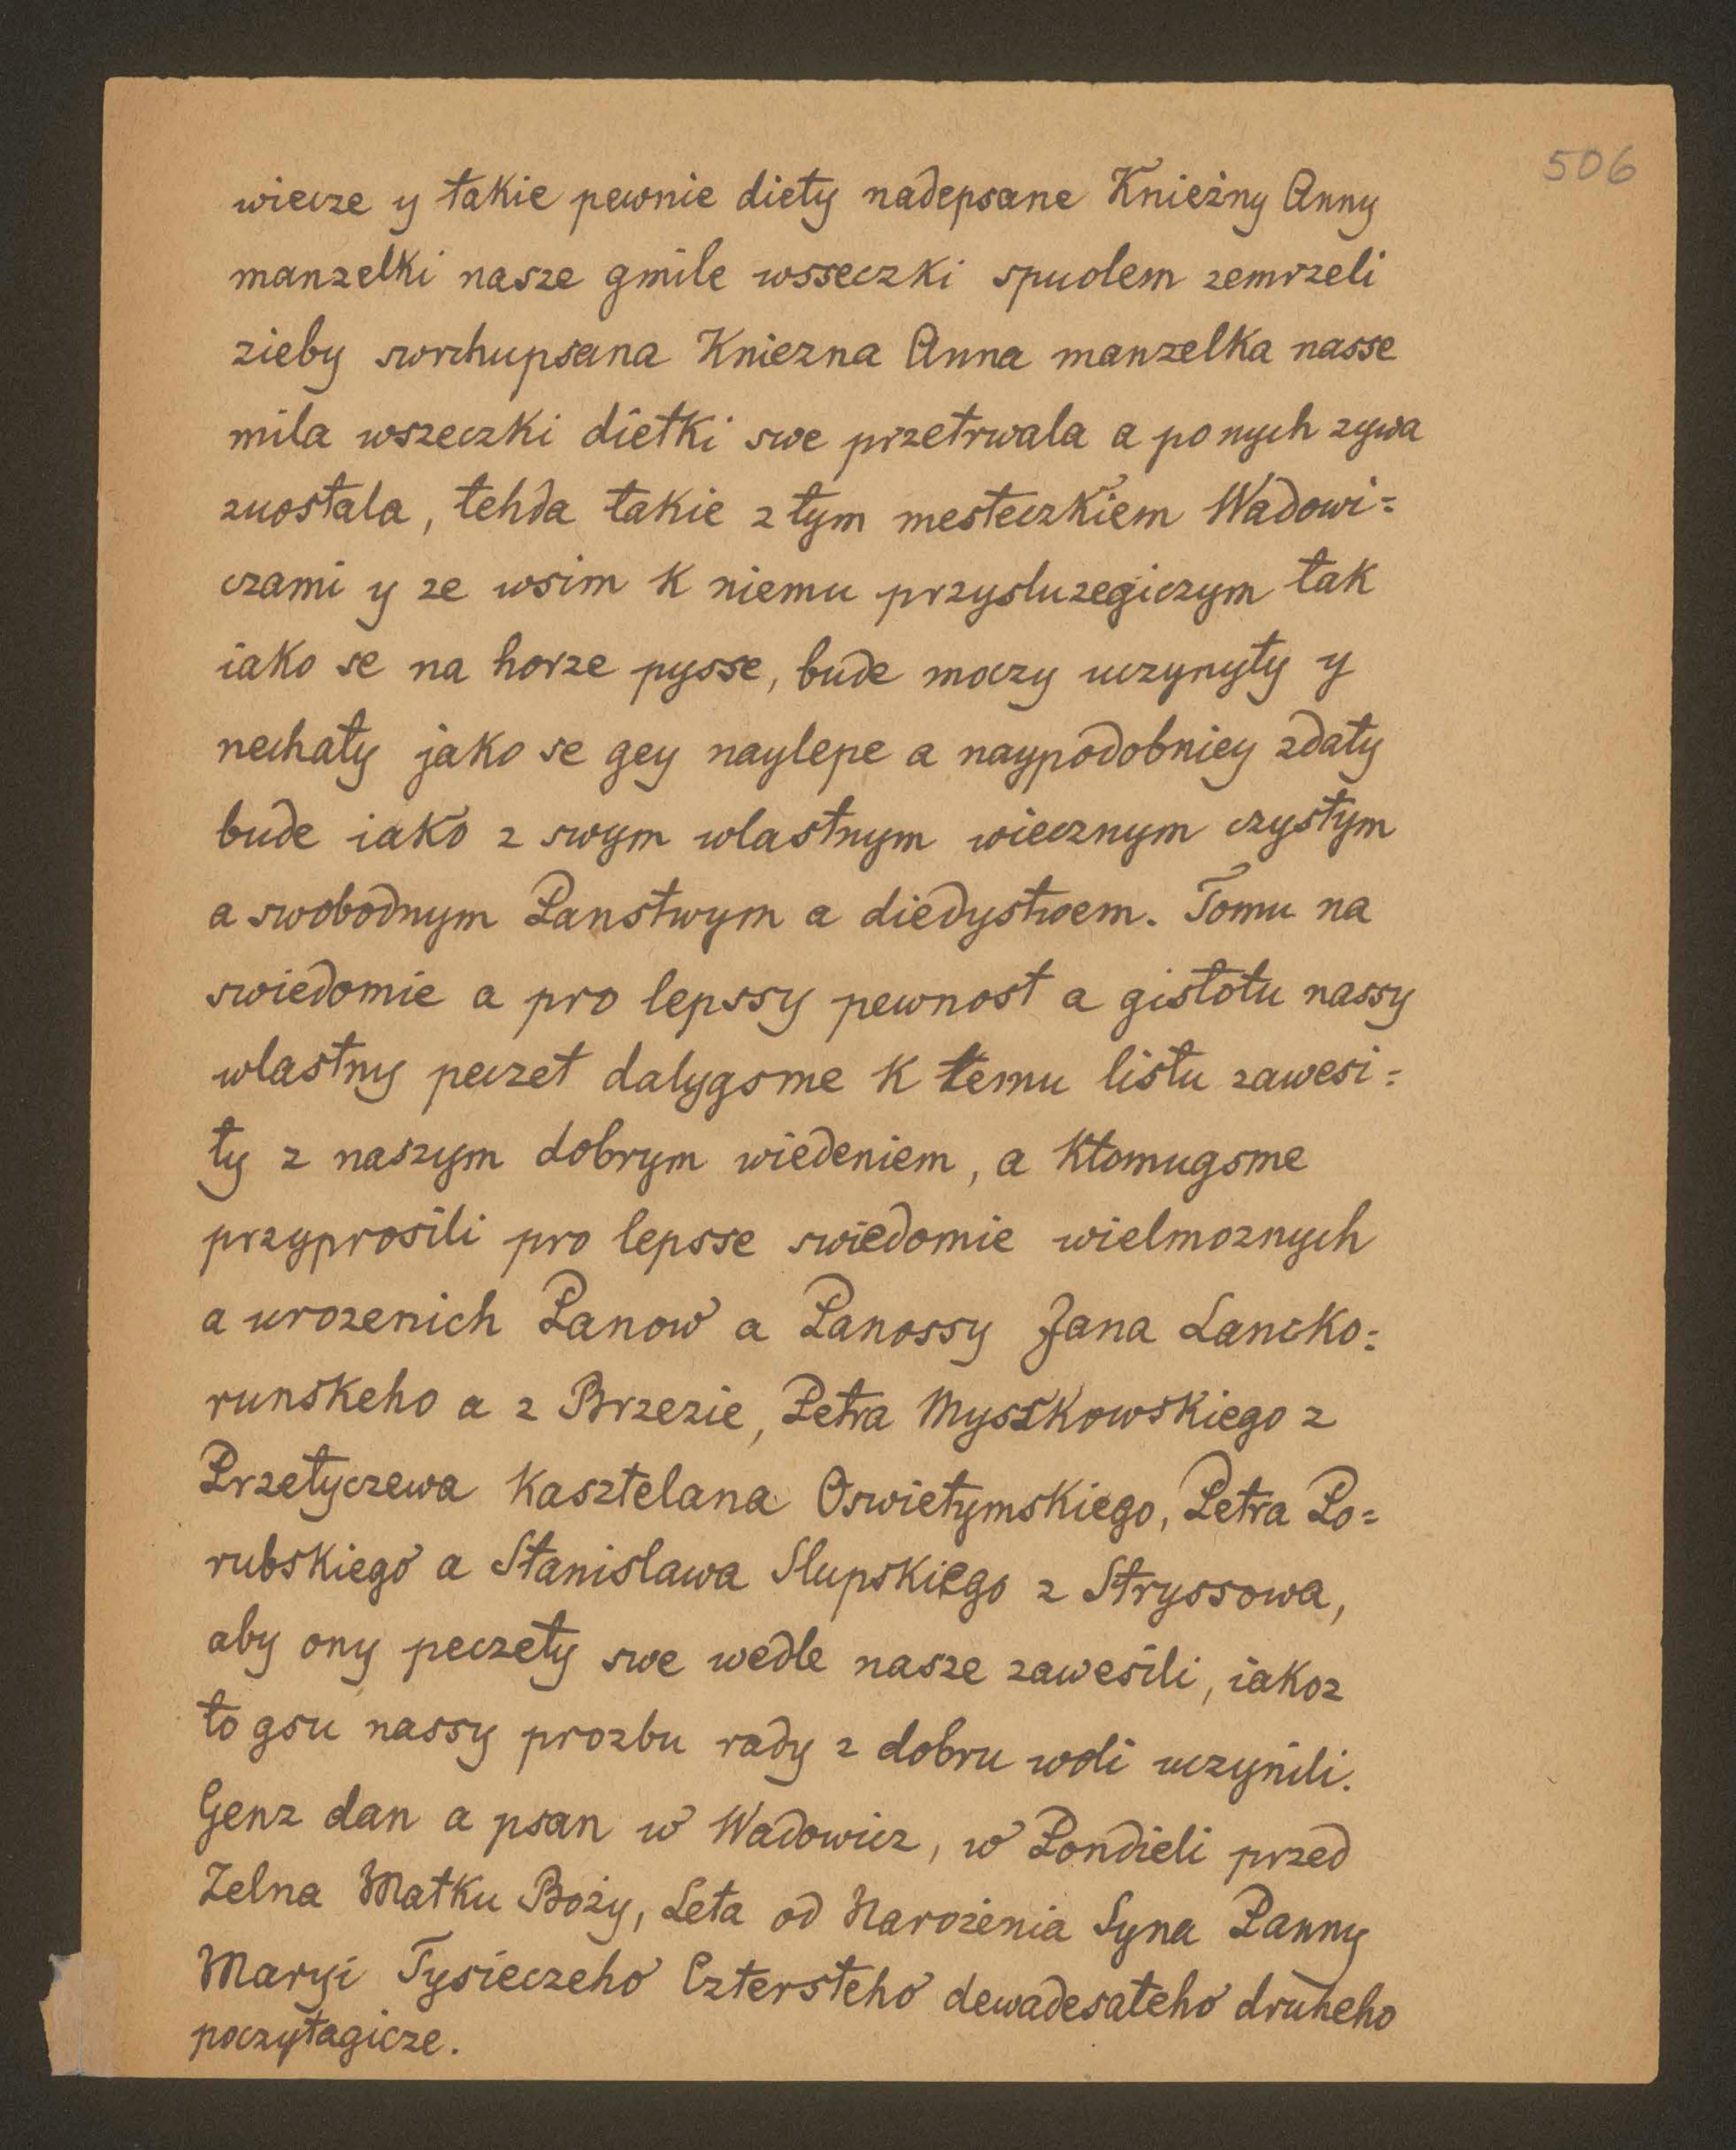 506
wiecze y takie pewnie diety nadepsane Knieżny Anny
manzelki nasze gmile wsseczki spuolem zemrzeli
zieby swrchupsana Kniezna Anna manzelka nasse
mila wszeczki dietki swe przetrwala a po nych zywa
zuostala, tehda takie z tym mesteczkiem Wadowi=
czami y ze wsim k niemu przysluzegiczym tak
iako se na horze pysse, bude moczy uczynyty y
nechaty jako se gey naylepe a naypodobniey zdaty
bude iako z swym wlastnym wiecznym czystym
a swobodnym Panstwym a diedystwem. Tomu na
swiedomie a pro lepssy pewnost a gistotu nassy
wlastny peczet dalygsme k temu listu zawesi=
ty z naszym dobrym wiedeniem, a ktomugsme
przyprosili pro lepsse swiedomie wielmoznych
a urozenich Panow a Panossy Jana Lancko=
runskeho a z Brzezie, Petra Mysskowskiego z
Przetyczewa Kasztelana Oswietymskiego, Petra Po=
rubskiego a Stanislawa Slupskiego z Stryssowa,
aby ony peczety swe wedle nasze zawesili, iakoz
to gsu nassy prozbu rady z dobru woli uczynili.
Genz dan a psan w Wadowicz, w Pondieli przed
Zelna Matku Boży, Leta od Narożenia Syna Panny
Maryi Tysieczeho Cztersteho dewadesateho druheho
poczytagicze.